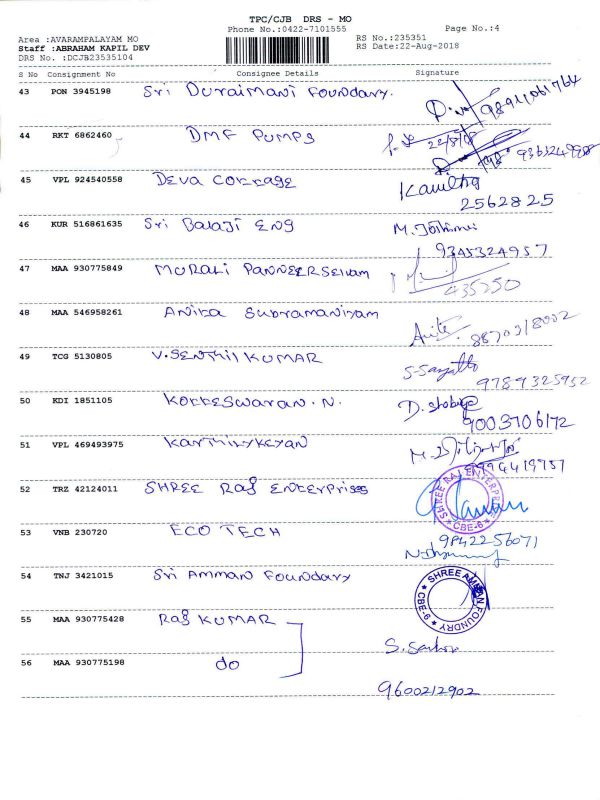 TPC/CJB DRS - MO
Phone No.:0422-7101555
Page No.:4
Area :AVARAMPALAYAM MO
RS No.:235351
Staff :ABRAHAM KAPIL DEV
RS Date:22-Aug-2018
DRS No. :DCJB23535104
S No Consignment No Consignee Details Signature
43 PON 3945198 Sri Duraimani Foundary.
9894061764
44 RKT 6862460 DMF PUMPS
22/8/18
45 VPL 924540558 Deva Cottage
2562825
46 KUR 516861635 Sri Balaji Eng
9345324957
47 MAA 930775849 Murali Panneerselvam
435250
48 MAA 546958261 Anita Subramaniyam
49 TCG 5130805 V. Senthil Kumar
9789325952
50 KDI 1851105 Kotteswaran. N.
9003706172
51 VPL 469493975 Karthikykeyan
9994419757
52 TRZ 42124011 SHREE Raj Enterprises
SHREE RAJ ENTERPRISES
CBE-6
53 VNB 230720 ECO TECH
9842256071
54 TNJ 3421015 Sri Amman Foundary
SHREE AMMAN FOUNDRY
CBE-9
55 MAA 930775428 Raj KUMAR
56 MAA 930775198 do
9600212902